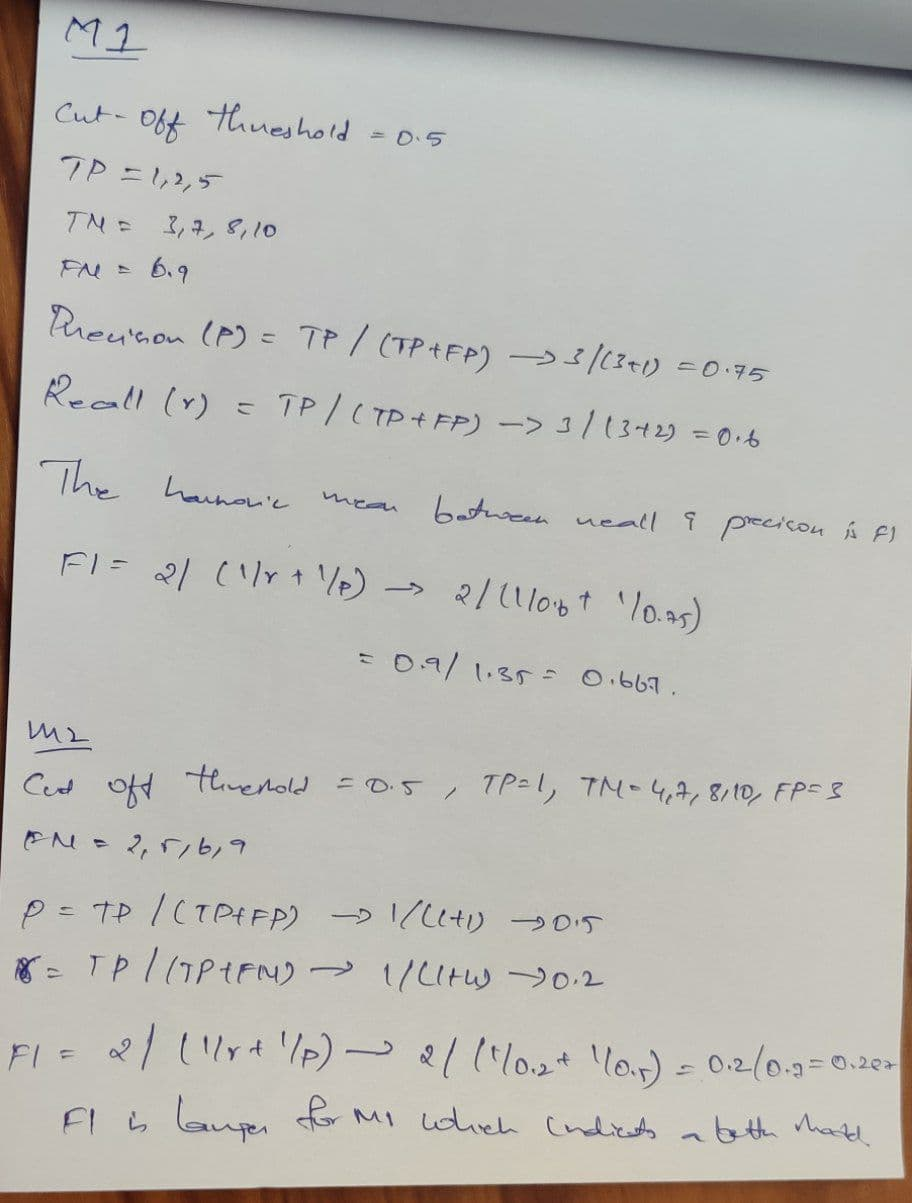 M1
Cut-Off threshold = 0.5
TP = 1,2,5
TN = 3,7,8,10
FN = 6.9
Precison (P) = TP / (TP+FP) → 3/(3+1) = 0.75
Recall (r) = TP / (TP+FP) -> 3/(3+2) = 0.6
The harmonic mean between recall & precison is F1
F1 = 2/ (1/r + 1/P) → 2/(1/0.6 + 1/0.75)
= 0.9/ 1.35 = 0.667.
M2
Cut off threshold = 0.5, TP=1, TN=4,7,8,10, FP=3
FN = 2,5,6,9
P = TP /(TP+FP) → 1/(1+1) → 0.5
r = TP/(TP+FN) → 1/(1+4) → 0.2
F1 = 2/ (1/r + 1/P) → 2/ (1/0.2 + 1/0.5) = 0.2/0.7 =
F1 is larger for M1 which indicates a better